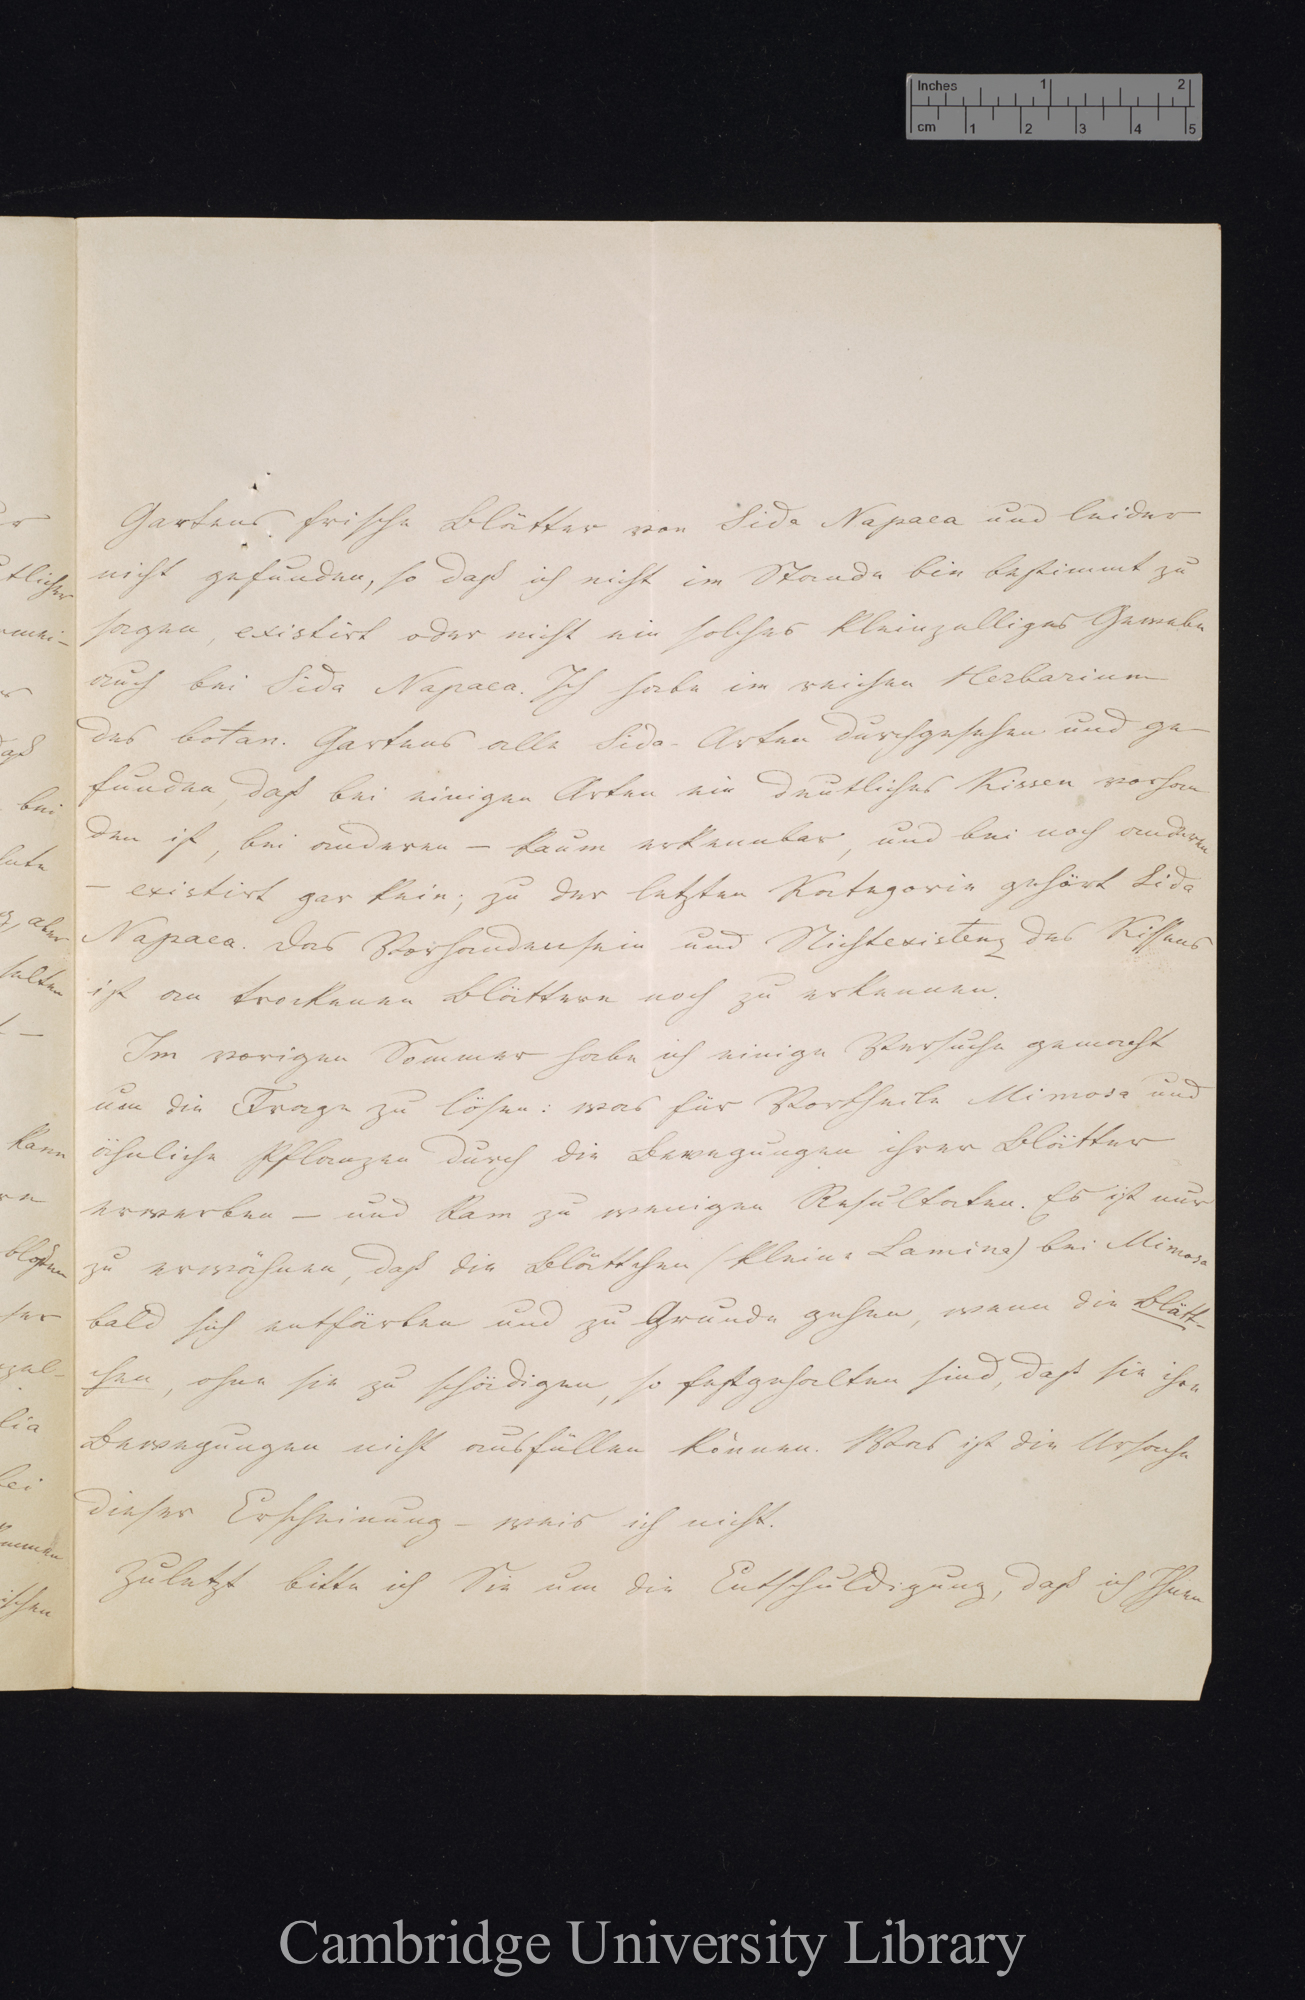 Inches 1 2
cm 1 2 3 4 5
Gartens frische Blätter von Sida Napaea und leider
nicht gefunden, so daß ich nicht im Stande bin bestimmt zu
sagen, existirt oder nicht ein solches kleinzelliges Gewebe
auch bei Sida Napaea. Ich habe im reichen Herbarium
des botan. Gartens alle Sida-Arten durchgesehen und ge-
funden, daß bei einigen Arten ein deutliches Kissen vorhan
den ist, bei anderen – kaum erkennbar, und bei noch anderen
– existirt gar kein; zu der letzten Kategorie gehört Sida
Napaea. Das Vorhandensein und Nichtexistenz des Kissens
ist an trockenen Blättern noch zu erkennen.
Im vorigen Sommer habe ich einige Versuche gemacht
um die Frage zu lösen: was für Vortheile Mimosa und
ähnliche Pflanzen durch die Bewegungen ihrer Blätter
erwerben – und kam zu wenigen Resultaten. Es ist nur
zu erwähnen, daß die Blättchen (kleine Lamina) bei Mimosa
bald sich entfärben und zu Grunde gehen, wenn die Blätt-
chen, ohne sie zu schädigen, so festgehalten sind, daß sie ihre
Bewegungen nicht ausfüllen können. Was ist die Ursache
dieser Erscheinung – weis ich nicht.
Zuletzt bitte ich Sie um die Entschuldigung, daß ich Ihnen
Cambridge University Library